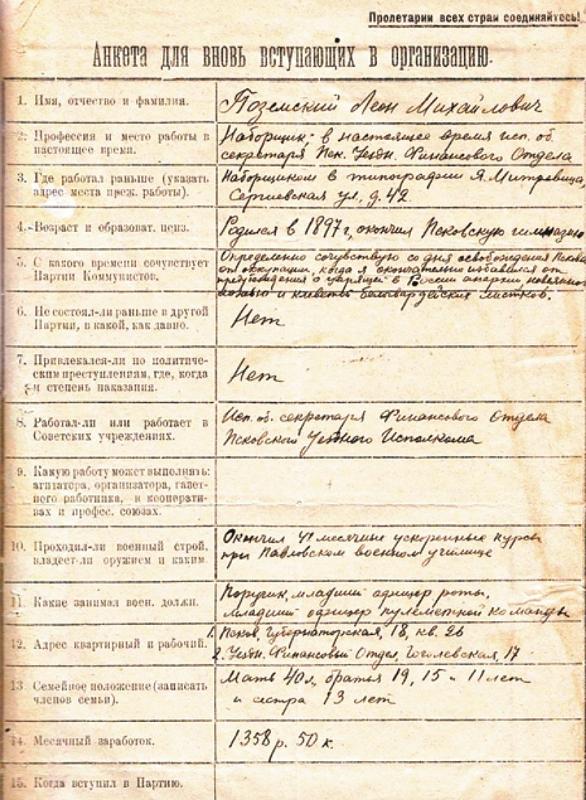 Пролетарии всех стран соединяйтесь!
Анкета для вновь вступающих в организацию.
1. Имя, отчество и фамилия.
Поземский Леон Михайлович
2. Профессия и место работы в
настоящее время.
Наборщик; в настоящее время исп. об.
секретаря Пск. Уездн. Финансового Отдела
3. Где работал раньше (указать
адрес места преж. работы).
Наборщиком в типографии Я. Митревица,
Сергиевская ул, д. 42.
4. Возраст и образоват. ценз.
Родился в 1897 г, окончил Псковскую гимназию
5. С какого времени сочувствует
Партии Коммунистов.
Определенно сочувствую со дня освобождения Пскова
от оккупации, когда я окончательно избавился от
предубеждения о царящей в России анархии навеянного
и клеветы белогвардейских листков.
6. Не состоял-ли раньше в другой
Партии, в какой, как давно.
Нет
7. Привлекался-ли по политичес-
ким преступлениям, где, когда
и степень наказания.
Нет
8. Работал-ли или работает в
Советских учреждениях.
Исп. об. секретаря Финансового Отдела
Псковского Уездного Исполкома
9. Какую работу может выполнять:
агитатора, организатора, газет-
ного работника, в кооперати-
вах и профес. союзах.
10. Проходил-ли военный строй,
владеет-ли оружием и каким.
Окончил 4х месячные ускоренные курсы
при Павловском военном училище
11. Какие занимал воен. должн.
Поручик, младший офицер роты,
младший офицер пулеметной команды
12. Адрес квартирный и рабочий.
1. Псков, Губернаторская, 18, кв. 26
2. Уездн. Финансовый Отдел, Гоголевская, 17
13. Семейное положение (записать
членов семьи).
Мать 40 л, братья 19, 15 и 11 лет
и сестра 13 лет
14. Месячный заработок.
1358 р. 50 к.
15. Когда вступил в Партию.